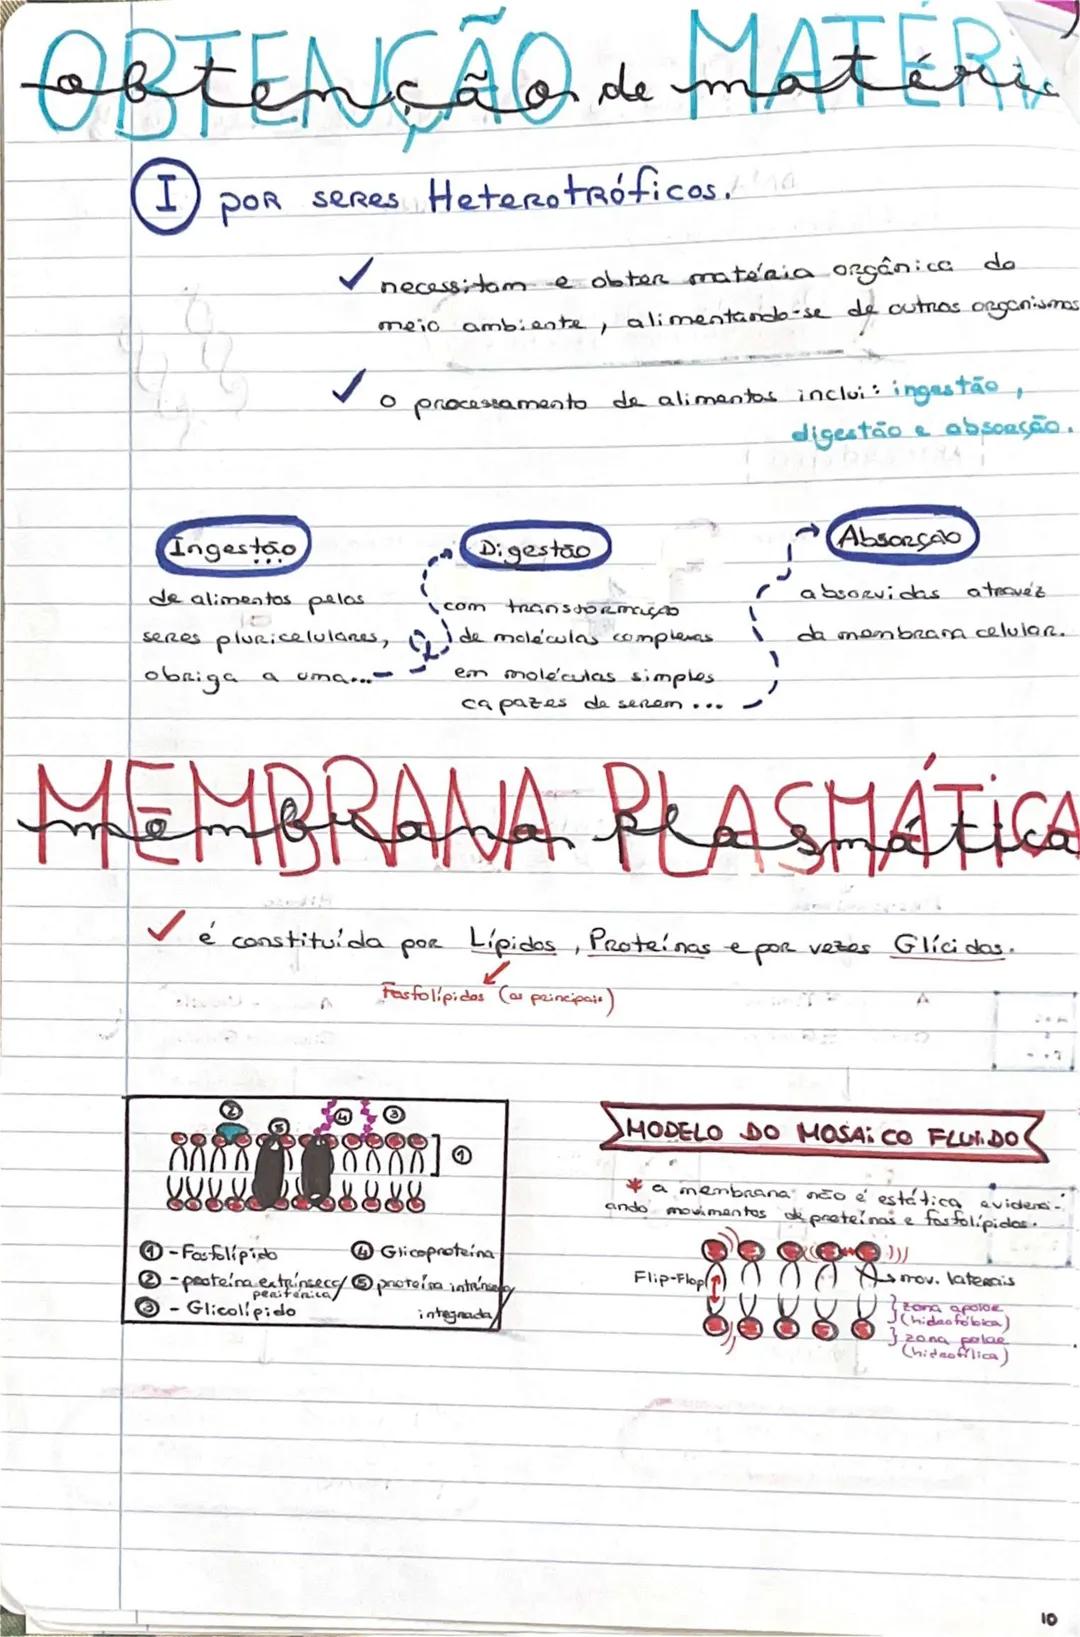 OBTENÇÃO de MATÉRI
obtenção de matéria
I por seres Heterotróficos.
✓ necessitam e obter matéria orgânica do
meio ambiente, alimentando-se de outros organismos
✓ o processamento de alimentos inclui: ingestão,
digestão e absorção.
Ingestão
de alimentos pelos
seres pluricelulares,
obriga a uma...
Digestão
com transformação
de moléculas complexas
em moléculas simples
capazes de serem ...
Absorção
absorvidas atravéz
da membrana celular.
MEMBRANA PLASMÁTICA
membrana plasmática
✓ é constituída por Lípidos, Proteínas e por vezes Glícidos.
Fosfolípidos (os principais)
2 5 4 3
1
1 - Fosfolípido
2 - proteína extrínseca/
periférica/
3 - Glicolípido
4 Glicoproteína
5 proteína intrínseca/
integrada/
MODELO DO MOSAiCO FLUiDO
* a membrana não é estática, evidenci-
ando movimentos de proteínas e fosfolípidos.
Flip-Flop
mov. laterais
} zona apolar
(hidrofóbica)
} zona polar
(hidrofílica)
10